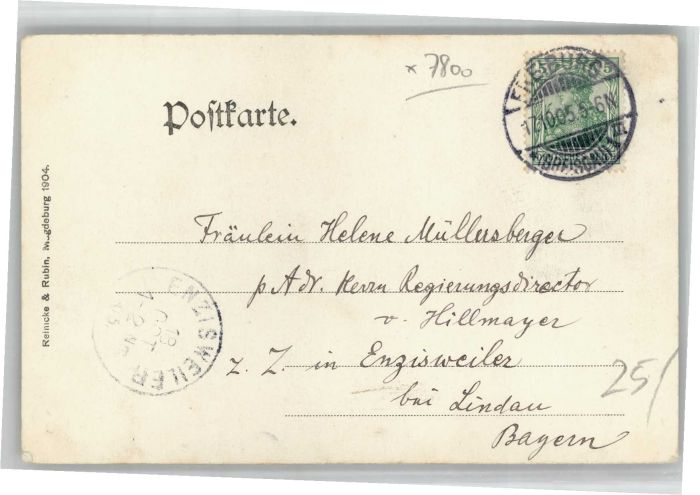 x 7800
5 5
FREIBURG
17.10.05.5-6N
(BREISGAU) 1
Postkarte.
Reinicke & Rubin, Magdeburg 1904.
Fräulein Helene Müllersberger
p Adr. Herrn Regierungsdirector
v. Hillmayer
z. Z. in Enzisweiler
bei Lindau
Bayern
ENZISWEILER
18
OCT
25/